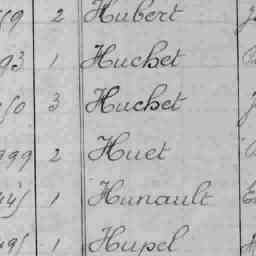 2 Hubert
93 1 Huchet
3 Huchet
999 2 Huet
1 Hunault
1 Hupel